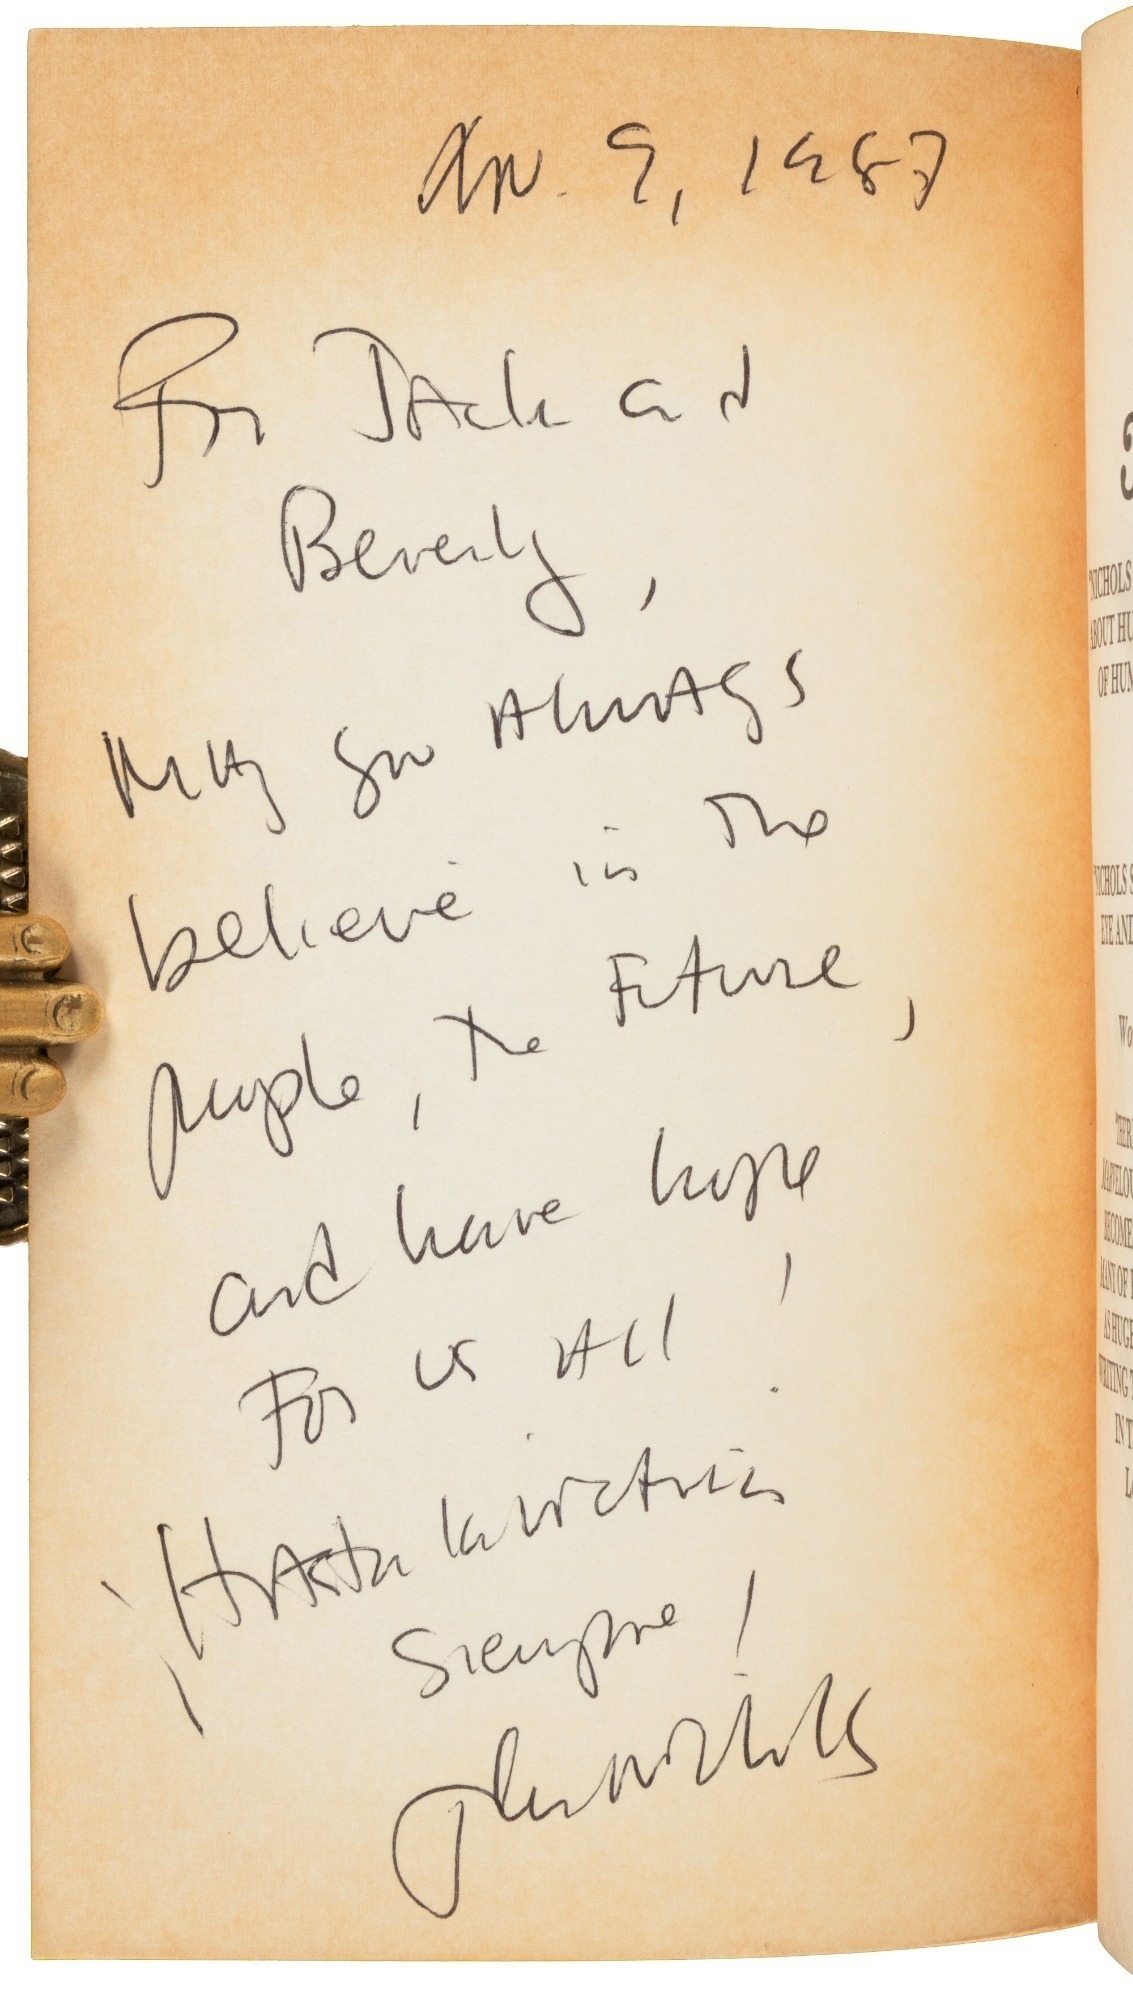 Apr. 9, 1987
For Jack and
Beverly,
May you Always
believe in The
people, the Future,
and have hope
For us All!
¡Hasta la victoria
siempre!
John Nichols
"NICHOLS
ABOUT HU
OF HUM
"NICHOLS S
EYE AND
Wo
"THER
MARVELOU
BECOME
MANY OF
AS HUGE
WRITING T
IN T
L